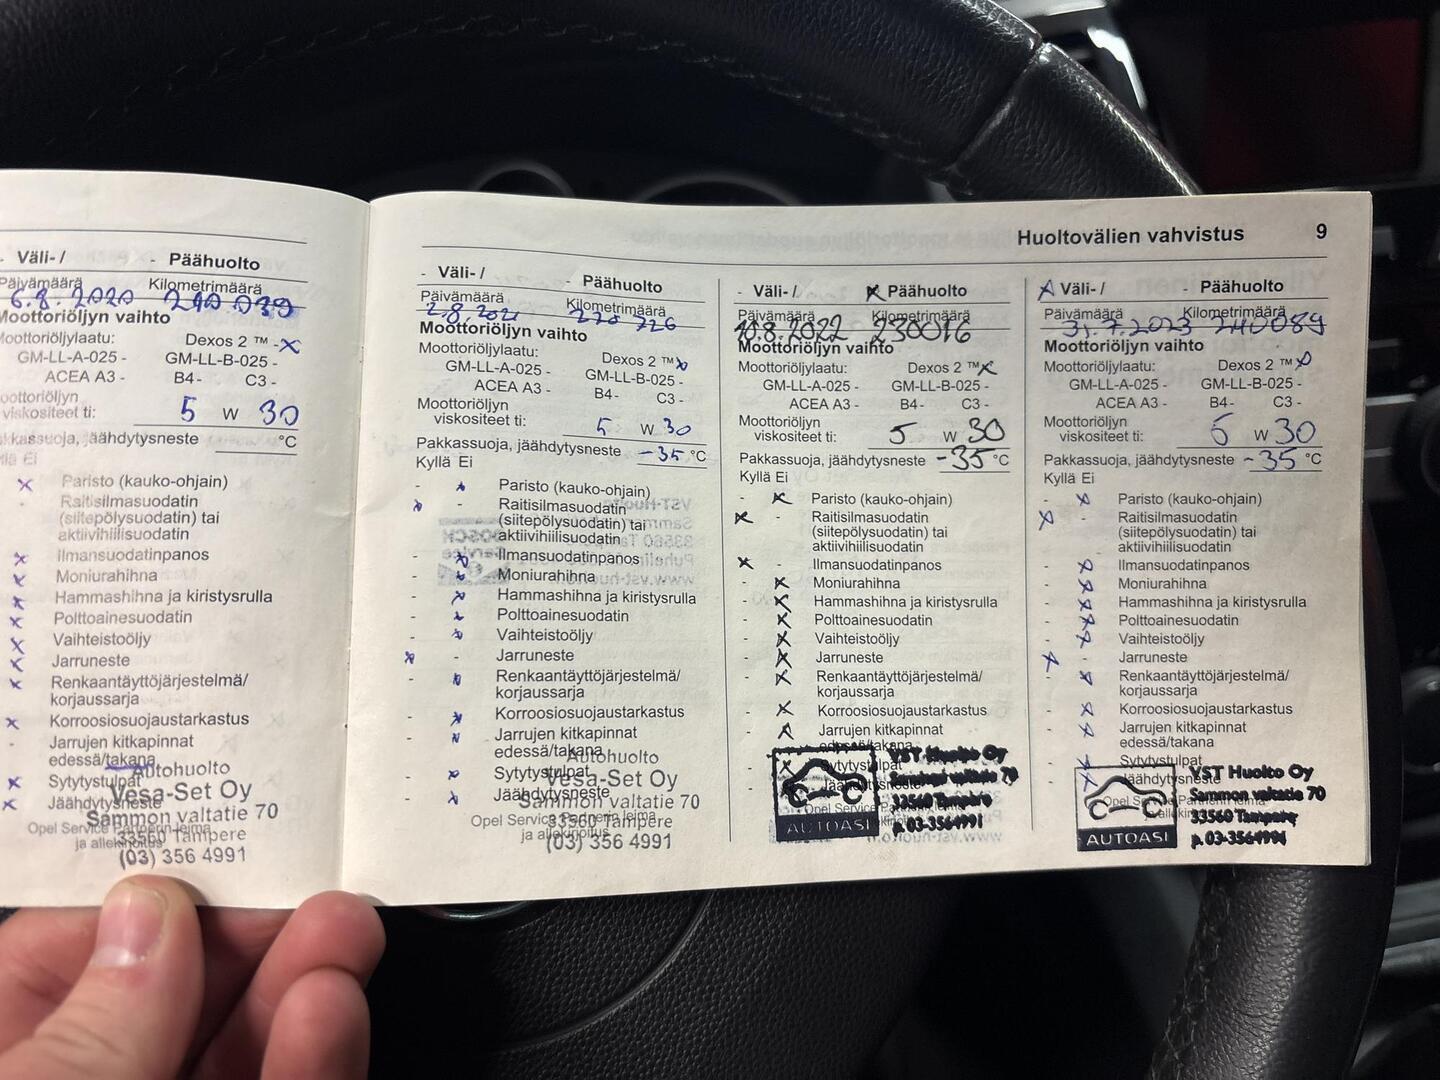 Huoltovälien vahvistus 9
- Väli- / - Päähuolto
Päivämäärä Kilometrimäärä
6.8.2020 210 039
Moottoriöljyn vaihto
Moottoriöljylaatu: Dexos 2 ™ - x
GM-LL-A-025 - GM-LL-B-025 -
ACEA A3 - B4- C3 -
Moottoriöljyn
viskositeet ti: 5 W 30
Pakkassuoja, jäähdytysneste °C
Kyllä Ei
x Paristo (kauko-ohjain)
- Raitisilmasuodatin
(siitepölysuodatin) tai
aktiivihiilisuodatin
x Ilmansuodatinpanos
x Moniurahihna
x Hammashihna ja kiristysrulla
x Polttoainesuodatin
x Vaihteistoöljy
x Jarruneste
x Renkaantäyttöjärjestelmä/
korjaussarja
x Korroosiosuojaustarkastus
- Jarrujen kitkapinnat
edessä/takana
x Sytytystulpat
x Jäähdytysneste
Opel Service Partnerin leima
ja allekirjoitus
Autohuolto
Vesa-Set Oy
Sammon valtatie 70
33560 Tampere
(03) 356 4991
- Väli- / - Päähuolto
Päivämäärä Kilometrimäärä
2.8.2021 220 726
Moottoriöljyn vaihto
Moottoriöljylaatu: Dexos 2 ™ x
GM-LL-A-025 - GM-LL-B-025 -
ACEA A3 - B4- C3 -
Moottoriöljyn
viskositeet ti: 5 W 30
Pakkassuoja, jäähdytysneste -35 °C
Kyllä Ei
- x Paristo (kauko-ohjain)
x - Raitisilmasuodatin
(siitepölysuodatin) tai
aktiivihiilisuodatin
- x Ilmansuodatinpanos
- x Moniurahihna
- x Hammashihna ja kiristysrulla
- x Polttoainesuodatin
- x Vaihteistoöljy
x - Jarruneste
- x Renkaantäyttöjärjestelmä/
korjaussarja
- x Korroosiosuojaustarkastus
- x Jarrujen kitkapinnat
edessä/takana
- x Sytytystulpat
- x Jäähdytysneste
Opel Service Partnerin leima
ja allekirjoitus
Autohuolto
Vesa-Set Oy
Sammon valtatie 70
33560 Tampere
(03) 356 4991
- Väli- / x Päähuolto
Päivämäärä Kilometrimäärä
10.8.2022 230016
Moottoriöljyn vaihto
Moottoriöljylaatu: Dexos 2 ™ x
GM-LL-A-025 - GM-LL-B-025 -
ACEA A3 - B4- C3 -
Moottoriöljyn
viskositeet ti: 5 W 30
Pakkassuoja, jäähdytysneste -35 °C
Kyllä Ei
- x Paristo (kauko-ohjain)
x - Raitisilmasuodatin
(siitepölysuodatin) tai
aktiivihiilisuodatin
x - Ilmansuodatinpanos
- x Moniurahihna
- x Hammashihna ja kiristysrulla
- x Polttoainesuodatin
- x Vaihteistoöljy
- x Jarruneste
- x Renkaantäyttöjärjestelmä/
korjaussarja
- x Korroosiosuojaustarkastus
- x Jarrujen kitkapinnat
edessä/takana
- x Sytytystulpat
- Jäähdytysneste
AUTOASI
VST Huolto Oy
Sammon valtatie 70
33560 Tampere
p. 03-3564991
x Väli- / - Päähuolto
Päivämäärä Kilometrimäärä
31.7.2023 240089
Moottoriöljyn vaihto
Moottoriöljylaatu: Dexos 2 ™ x
GM-LL-A-025 - GM-LL-B-025 -
ACEA A3 - B4- C3 -
Moottoriöljyn
viskositeet ti: 5 W 30
Pakkassuoja, jäähdytysneste -35 °C
Kyllä Ei
- x Paristo (kauko-ohjain)
x - Raitisilmasuodatin
(siitepölysuodatin) tai
aktiivihiilisuodatin
- x Ilmansuodatinpanos
- x Moniurahihna
- x Hammashihna ja kiristysrulla
- x Polttoainesuodatin
- x Vaihteistoöljy
x - Jarruneste
- x Renkaantäyttöjärjestelmä/
korjaussarja
- x Korroosiosuojaustarkastus
- x Jarrujen kitkapinnat
edessä/takana
- x Sytytystulpat
- x Jäähdytysneste
Opel Service Partnerin leima
AUTOASI
VST Huolto Oy
Sammon valtatie 70
33560 Tampere
p. 03-3564991